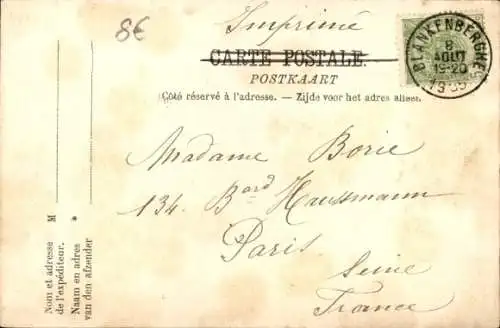 8€
Imprimé
CARTE POSTALE
POSTKAART
(Côté réservé à l'adresse. — Zijde voor het adres alleen.
BLANKENBERGHE
8
AOUT
19-20
Madame Borie
134. Bard Haussmann
Paris
Seine
France
M
Nom et adresse
de l'expéditeur.
Naam en adres
van den afzender